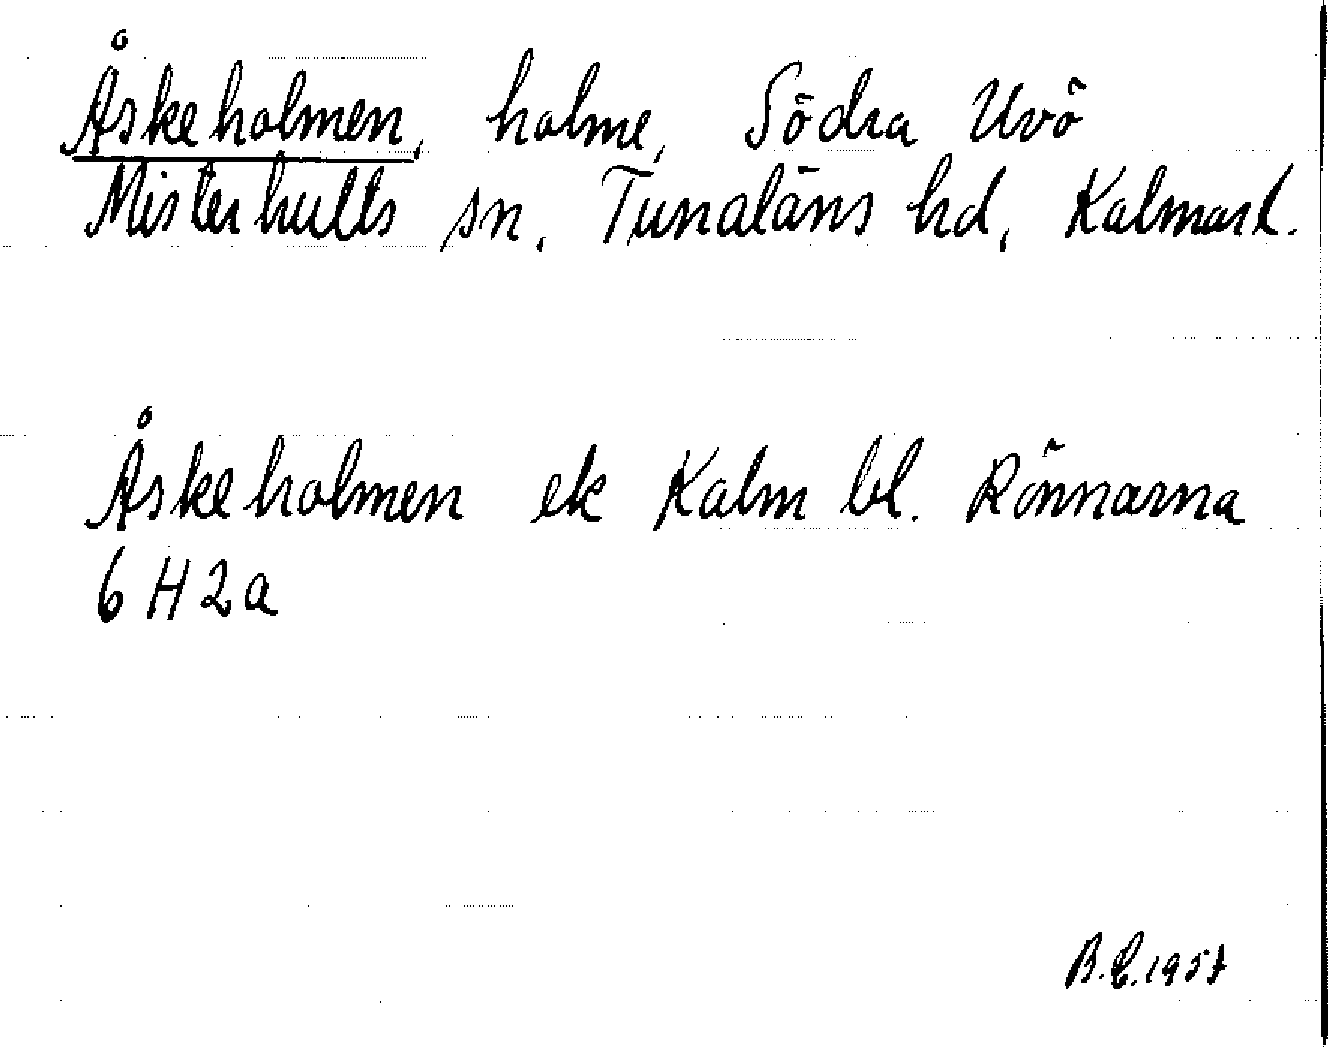 Åskeholmen, holme, Södra Uvö
Misterhults sn, Tunaläns hd, Kalmarl.
Åskeholmen ek Kalm bl. Rönnarna
6 H 2 a
B.E. 1957